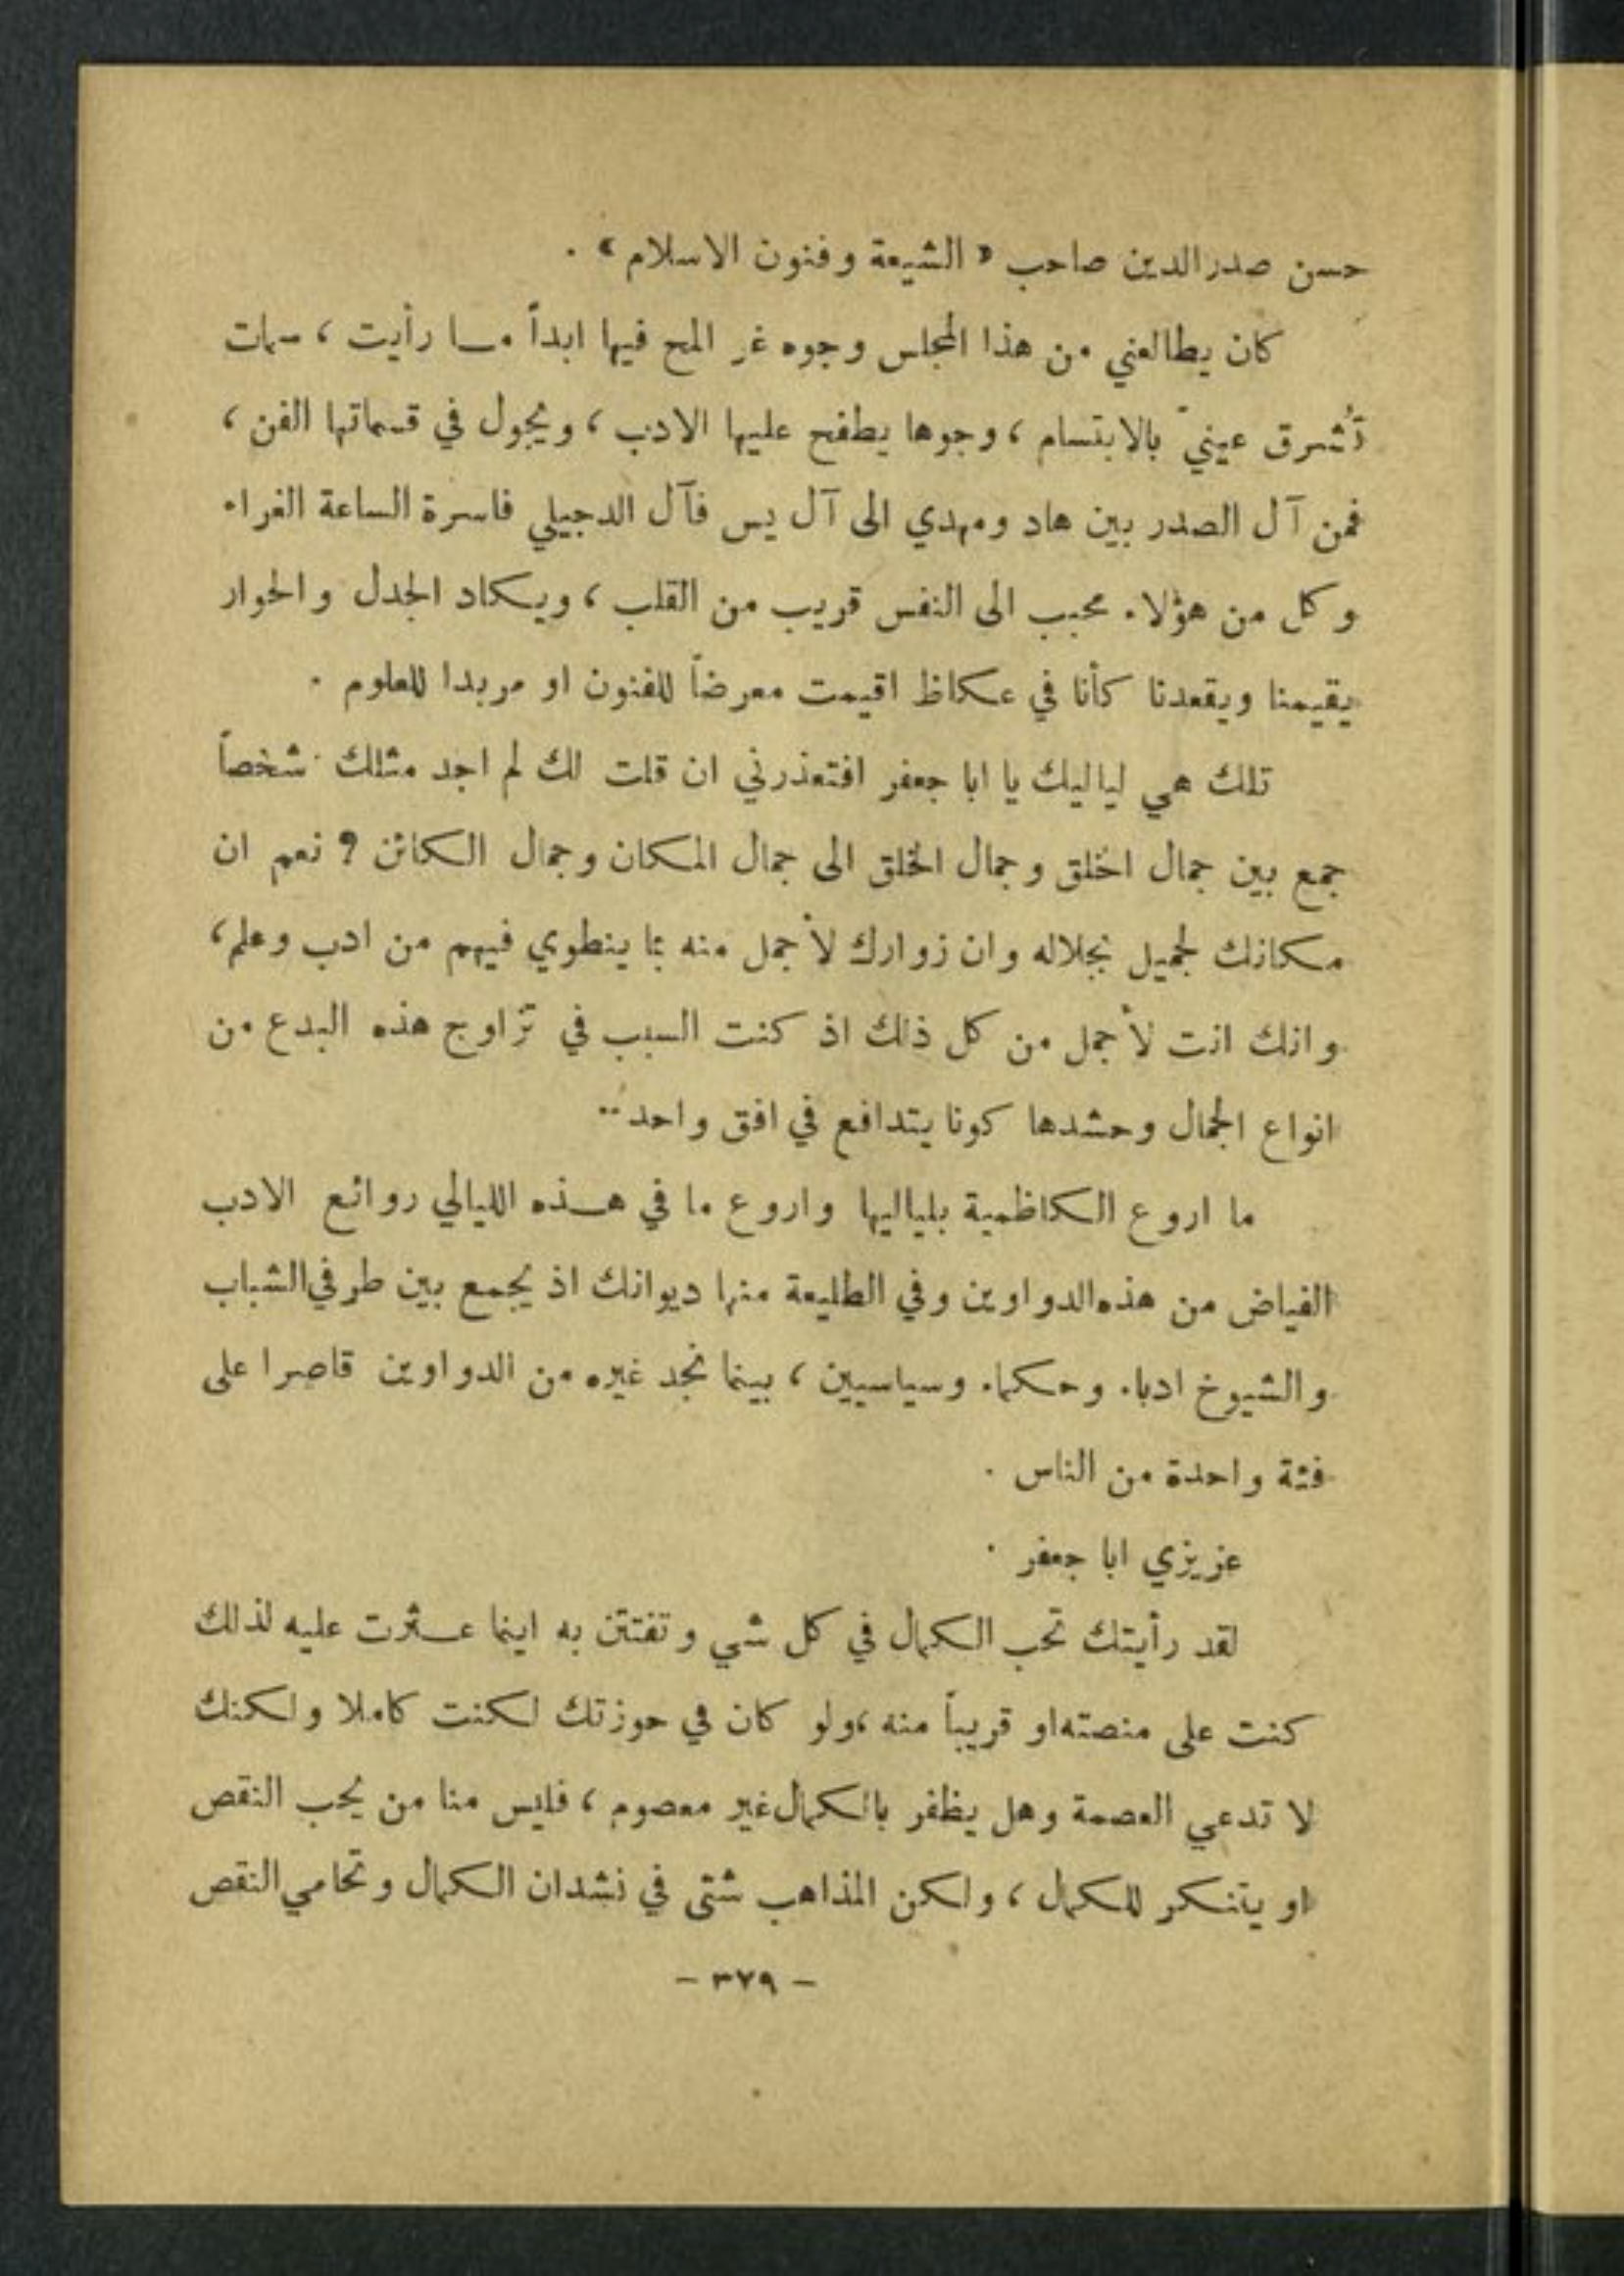 حسن صدر الدين صاحب « الشيعة وفنون الاسلام » .
كان يطالعني من هذا المجلس وجوه غر المح فيها ابداً ما رأيت ، سمات
تُشرق عينيّ بالابتسام ، وجوها يطفح عليها الادب ، ويجول في قسماتها الفن ،
فمن آل الصدر بين هاد ومهدي الى آل يس فآل الدجيلي فاسرة الساعة الغراء
وكل من هؤلاء محبب الى النفس قريب من القلب ، ويكاد الجدل والحوار
يقيمنا ويقعدنا كأنا في عكاظ اقيمت معرضاً للفنون او مربدا للعلوم .
تلك هي لياليك يا ابا جعفر افتعذرني ان قلت لك لم اجد مثلك شخصاً
جمع بين جمال الخلق وجمال الخلق الى جمال المكان وجمال الكائن ? نعم ان
مكانك لجميل بجلاله وان زوارك لأجمل منه بما ينطوي فيهم من ادب وعلم ،
وانك انت لأجمل من كل ذلك اذ كنت السبب في تزاوج هذه البدع من
انواع الجمال وحشدها كونا يتدافع في افق واحد ..
ما اروع الكاظمية بلياليها واروع ما في هذه الليالي روائع الادب
الفياض من هذه الدواوين وفي الطليعة منها ديوانك اذ يجمع بين طرفي الشباب
والشيوخ ادباء وحكماء وسياسيين ، بينما نجد غيره من الدواوين قاصرا على
فئة واحدة من الناس .
عزيزي ابا جعفر .
لقد رأيتك تحب الكمال في كل شي وتفتتن به اينما عثرت عليه لذلك
كنت على منصته او قريباً منه ، ولو كان في حوزتك لكنت كاملا ولكنك
لا تدعي العصمة وهل يظفر بالكمال غير معصوم ، فليس منا من يحب النقص
او يتنكر للكمال ، ولكن المذاهب شتى في نشدان الكمال وتحامي النقص
- ٣٧٩ -